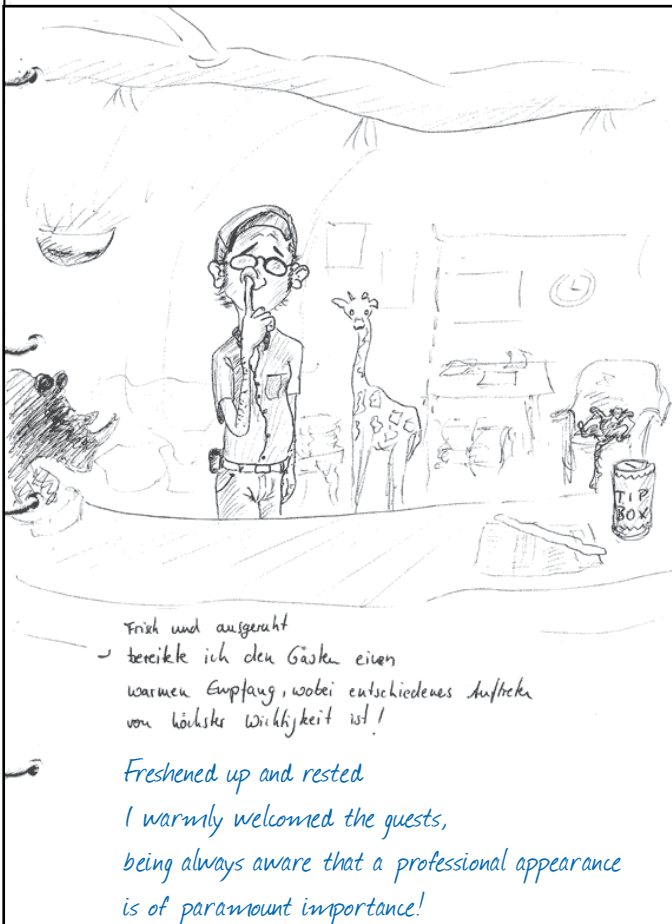 TIP
BOX
Frisch und ausgeruht
bereitete ich den Gästen einen
warmen Empfang, wobei entschiedenes Auftreten
von höchster Wichtigkeit ist!
Freshened up and rested
I warmly welcomed the guests,
being always aware that a professional appearance
is of paramount importance!